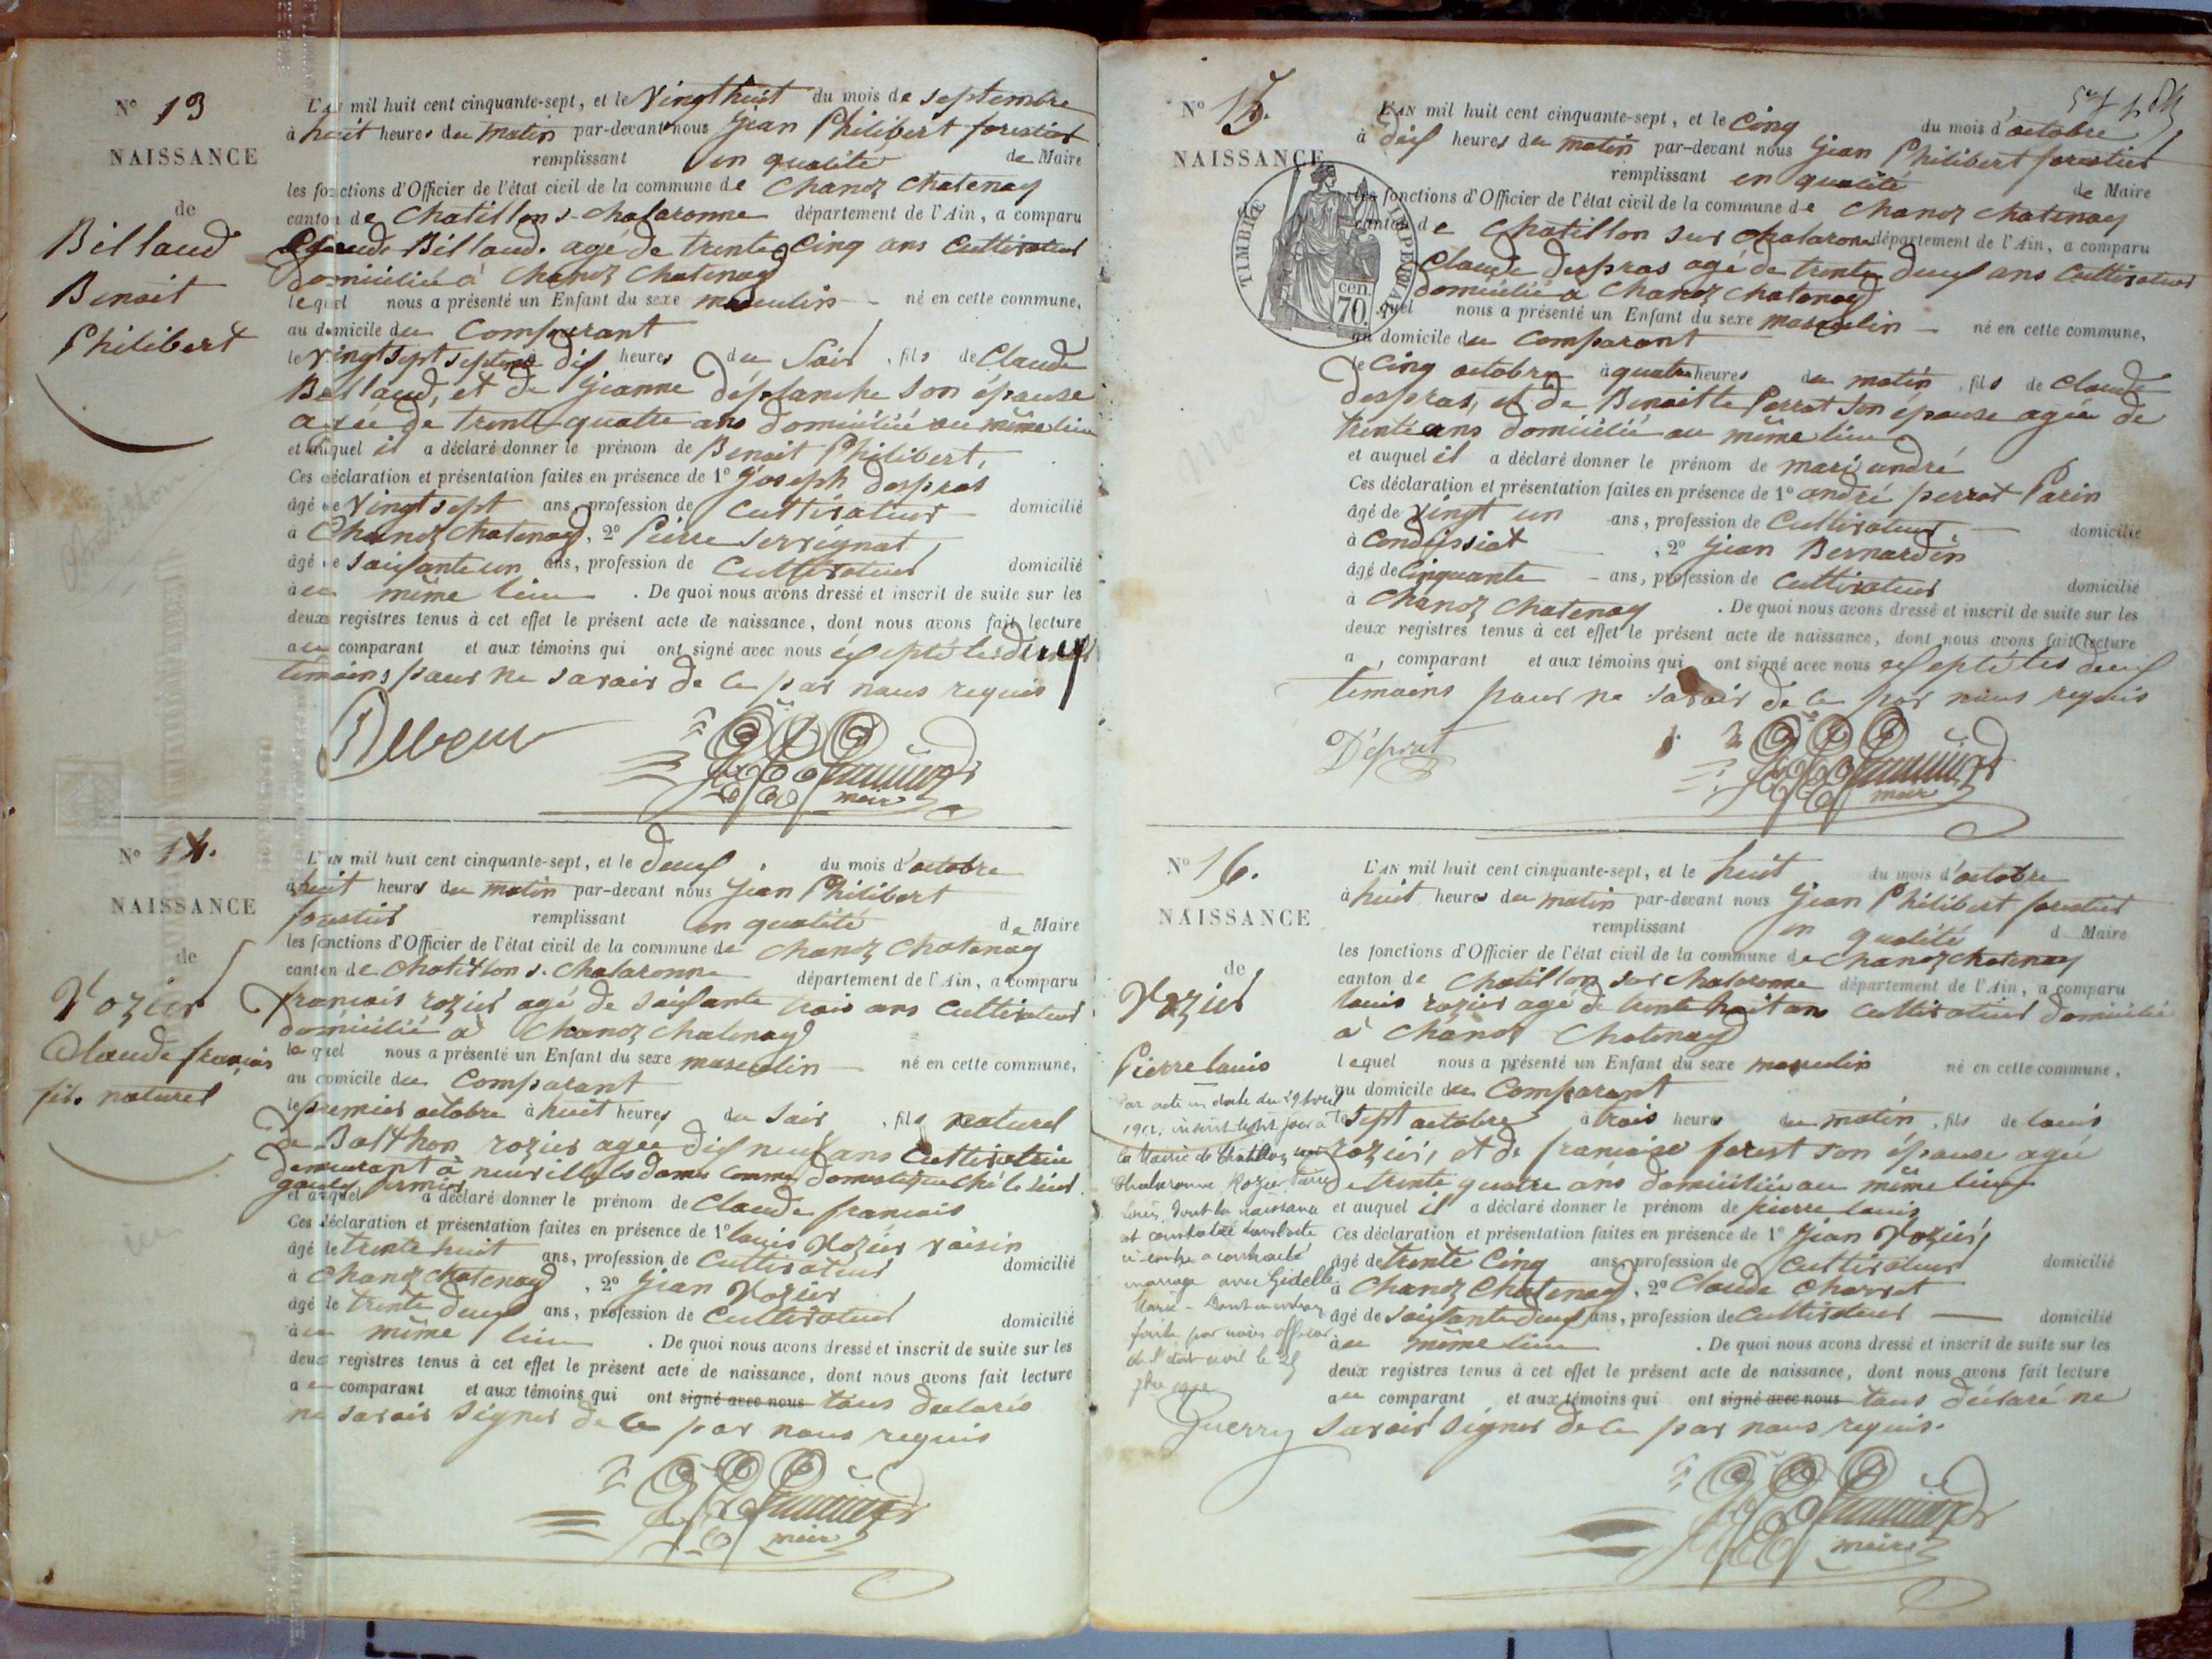 N° 13
NAISSANCE
de
Billaud
Benoit
Philibert
L'AN mil huit cent cinquante-sept, et le Vingthuit du mois de septembre
à huit heures du matin par-devant nous Jean Philibert forestier
remplissant en qualité de Maire
les fonctions d'Officier de l'état civil de la commune de Chanoz Chatenay
canton de Chatillon s. chalaronne département de l'Ain, a comparu
Claude Billaud. agé de trente Cinq ans Cultivateur
domicilié à Chanoz Chatenay
lequel nous a présenté un Enfant du sexe masculin né en cette commune,
au domicile du Comparant
le vingt sept septembre dix heures du Soir, fils de Claude
Billaud, et de Jeanne déplanche son épouse
agée de trente quatre ans domicilié au même lieu
et auquel il a déclaré donner le prénom de Benoit Philibert,
Ces déclaration et présentation faites en présence de 1° Joseph despras
âgé de Vingt sept ans, profession de Cultivateur domicilié
à Chanoz Chatenay, 2° Pierre Servignat
âgé de soixante un ans, profession de Cultivateur domicilié
au même lieu. De quoi nous avons dressé et inscrit de suite sur les
deux registres tenus à cet effet le présent acte de naissance, dont nous avons fait lecture
au comparant et aux témoins qui ont signé avec nous exsepté les deux
témoins pour ne savoir de ce par nous requis
maire
N° 14.
NAISSANCE
de
Rozier
Claude francois
fils naturel
L'AN mil huit cent cinquante-sept, et le deux du mois d'octobre
à huit heures du matin par-devant nous Jean Philibert
forestier remplissant en qualité de Maire
les fonctions d'Officier de l'état civil de la commune de Chanoz Chatenay
canton de Chatillon s. Chalaronne département de l'Ain, a comparu
francois rozier agé de soixante trois ans Cultivateur
domicilié à Chanoz chatenay
lequel nous a présenté un Enfant du sexe masculin né en cette commune,
au domicile du Comparant
le premier octobre à huit heures du soir, fils naturel
de rozier agée dix neuf ans Cultivatrice
demeurant à neuville les dames comme domestique ché le sieur
fermier
et auquel a déclaré donner le prénom de Claude francois
Ces déclaration et présentation faites en présence de 1° louis Rozier voisin
âgé de trente huit ans, profession de Cultivateur domicilié
à Chanoz chatenay, 2° Jean Rozier
âgé de trente deux ans, profession de Cultivateur domicilié
au même lieu. De quoi nous avons dressé et inscrit de suite sur les
deux registres tenus à cet effet le présent acte de naissance, dont nous avons fait lecture
au comparant et aux témoins qui ont signé avec nous tous declarés
ne savoir signer de ce par nous requis
maire
N° 15.
NAISSANCE
TIMBRE IMPERIAL
70 cen.
L'AN mil huit cent cinquante-sept, et le Cinq du mois d'octobre
à dix heures du matin par-devant nous Jean Philibert forestier
remplissant en qualité de Maire
les fonctions d'Officier de l'état civil de la commune de Chanoz chatenay
canton de Chatillon sur chalaronne département de l'Ain, a comparu
Claude despras agé de trente deux ans Cultivateur
domicilié à Chanoz chatenay
lequel nous a présenté un Enfant du sexe masculin né en cette commune,
au domicile du Comparant
le Cinq octobre à quatre heures du matin, fils de claude
despras, et de Benoitte Perrat son épouse agée de
trente ans domicilié au même lieu
et auquel il a déclaré donner le prénom de marie andré
Ces déclaration et présentation faites en présence de 1° andré perrat
âgé de vingt un ans, profession de Cultivateur domicilié
à Condeissiat, 2° Jean Bernardin
âgé de Cinquante ans, profession de Cultivateur domicilié
à Chanoz Chatenay. De quoi nous avons dressé et inscrit de suite sur les
deux registres tenus à cet effet le présent acte de naissance, dont nous avons fait lecture
a, comparant et aux témoins qui ont signé avec nous exsepté les deux
témoins pour ne savoir de ce par nous requis
Désprat
maire
N° 16.
NAISSANCE
de
Rozier
Pierre louis
L'AN mil huit cent cinquante-sept, et le huit du mois d'octobre
à huit heures du matin par-devant nous Jean Philibert forestier
remplissant en qualité d Maire
les fonctions d'Officier de l'état civil de la commune de Chanoz chatenay
canton de Chatillon sur chalaronne département de l'Ain, a comparu
louis rozier agé de trente huit ans Cultivateur domicilié
à Chanoz Chatenay
lequel nous a présenté un Enfant du sexe masculin né en cette commune,
au domicile du Comparant
le sept octobre à trois heures du matin, fils de louis
rozier, et de francoise forest son épouse agée
de trente quatre ans domicilié au même lieu
et auquel il a déclaré donner le prénom de pierre louis
Ces déclaration et présentation faites en présence de 1° Jean Rozier,
âgé de trente Cinq ans, profession de Cultivateur domicilié
à Chanoz Chatenay, 2° Claude Charvet
âgé de soixante deux ans, profession de Cultivateur domicilié
au même lieu. De quoi nous avons dressé et inscrit de suite sur les
deux registres tenus à cet effet le présent acte de naissance, dont nous avons fait lecture
au comparant et aux témoins qui ont signé avec nous tous déclaré ne
savoir signer de ce par nous requis.
maire
Par acte en date du
inscrit à
la Mairie de Chatillon sur
Chalaronne, Rozier Pierre
Louis, dont la naissance
est constatée dans l'acte
ci-contre a contracté
mariage avec
Marie - Dont mention
faite par nous officier
de l'état-civil le 25
Guerry